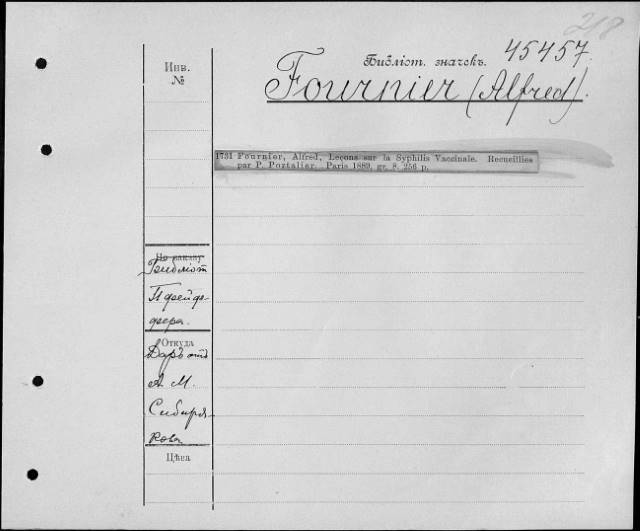 218
Инв.
№
Библіот. значекъ. 45457.
Fournier (Alfred).
1731 Fournier, Alfred, Leçons sur la Syphilis Vaccinale. Recueillies
par P. Portalier. Paris 1889, gr. 8. 256 p.
По каклад
Библіот
Пфейф-
фера.
Откуда
Даръ отъ
А. М.
Сибиря-
кова
Цѣна